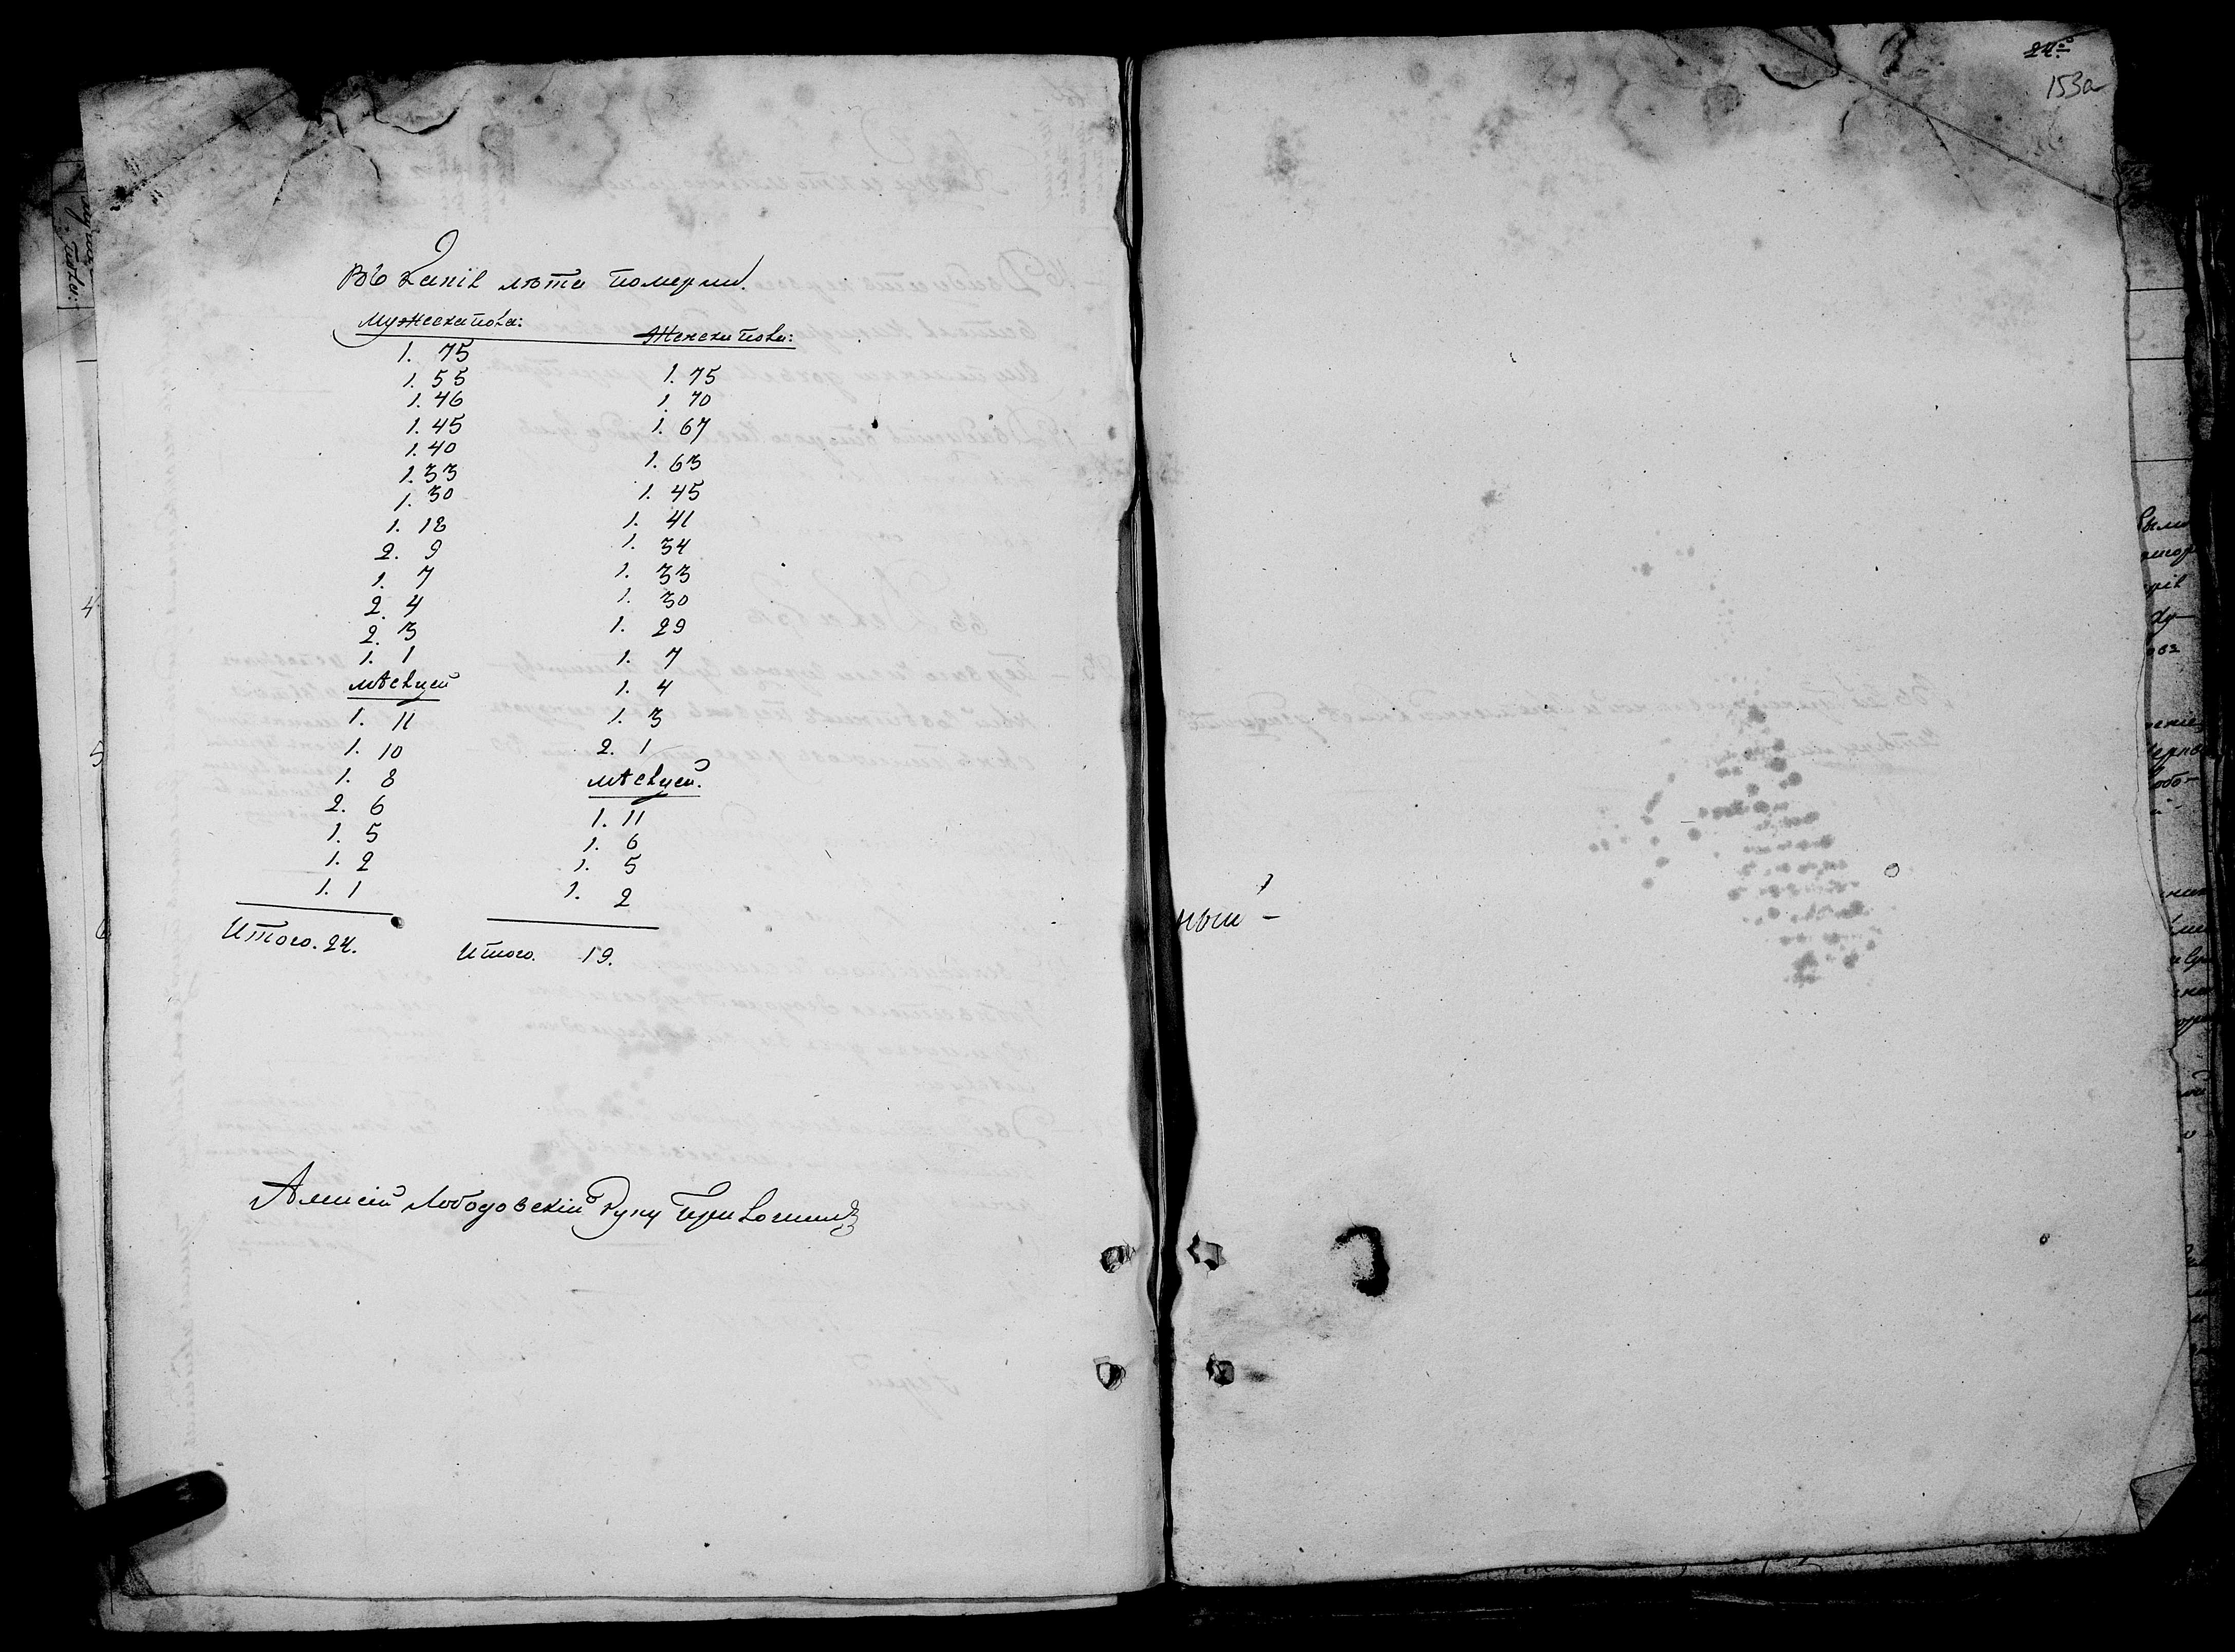 Въ Каніе лѣта померли.
Мужеска пола:
1. 75
1. 55
1. 46
1. 45
1. 40
1. 33
1. 30
1. 18
2. 9
1. 7
2. 4
2. 3
1. 1
мѣсяцей
1. 11
1. 10
1. 8
2. 6
1. 5
1. 2
1. 1
Итого. 24.
Женска пола:
1. 75
1. 70
1. 67
1. 63
1. 45
1. 41
1. 34
1. 33
1. 30
1. 29
1. 7
1. 4
1. 3
2. 1
мѣсяцей.
1. 11
1. 6
1. 5
1. 2
Итого. 19.
Алексій Лободовскій руку приложилъ
153а
ный -